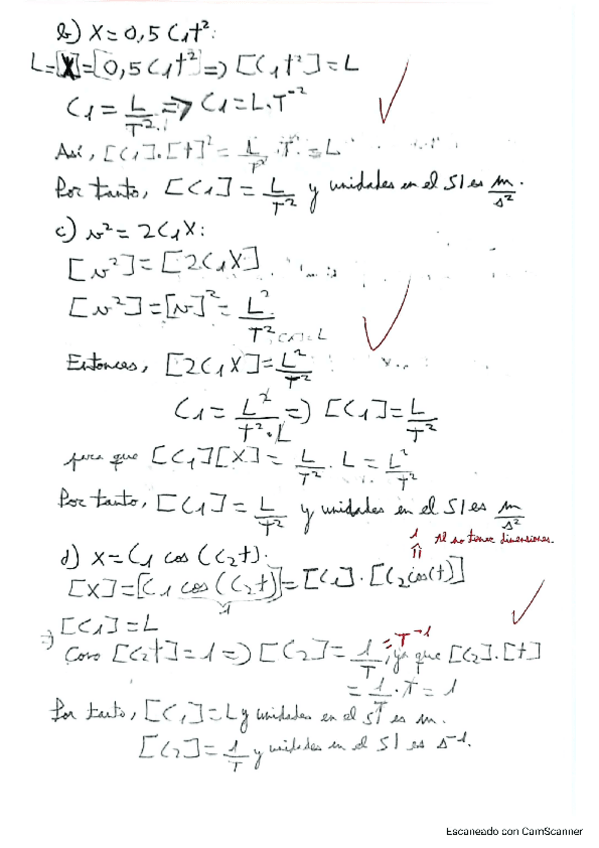 b) X = 0,5 C₁t²:
L = [X] = [0,5 C₁t²] => [C₁t²] = L
C₁ = L/T² => C₁ = L·T⁻²
Así, [C₁]·[t]² = L/T² · T² = L
Por tanto, [C₁] = L/T² y unidades en el SI es m/s².
c) v² = 2C₁X:
[v²] = [2C₁X]
[v²] = [v]² = L²/T²
Entonces, [2C₁X] = L²/T²
C₁ = L²/(T²·L) => [C₁] = L/T²
para que [C₁][X] = L/T² · L = L²/T²
Por tanto, [C₁] = L/T² y unidades en el SI es m/s²
1 Al no tener dimensiones.
d) X = C₁ cos (C₂t).
[X] = [C₁ cos (C₂t)] = [C₁]·[C₂cos(t)]
1
=> [C₁] = L
Como [C₂t] = 1 => [C₂] = 1/T = T⁻¹, ya que [C₂]·[t]
= 1/T · T = 1
Por tanto, [C₁] = L y unidades en el SI es m.
[C₂] = 1/T y unidades en el SI es s⁻¹.
Escaneado con CamScanner